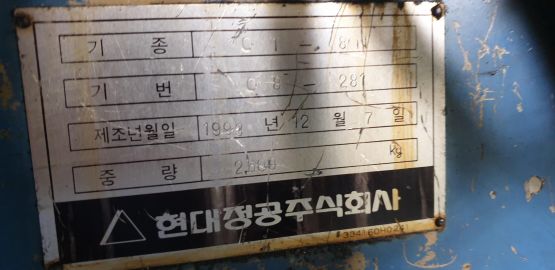 기 종
기 번 C 8 - 281
제조년월일 1993 년 12 월 7 일
중 량 kg
현대정공주식회사